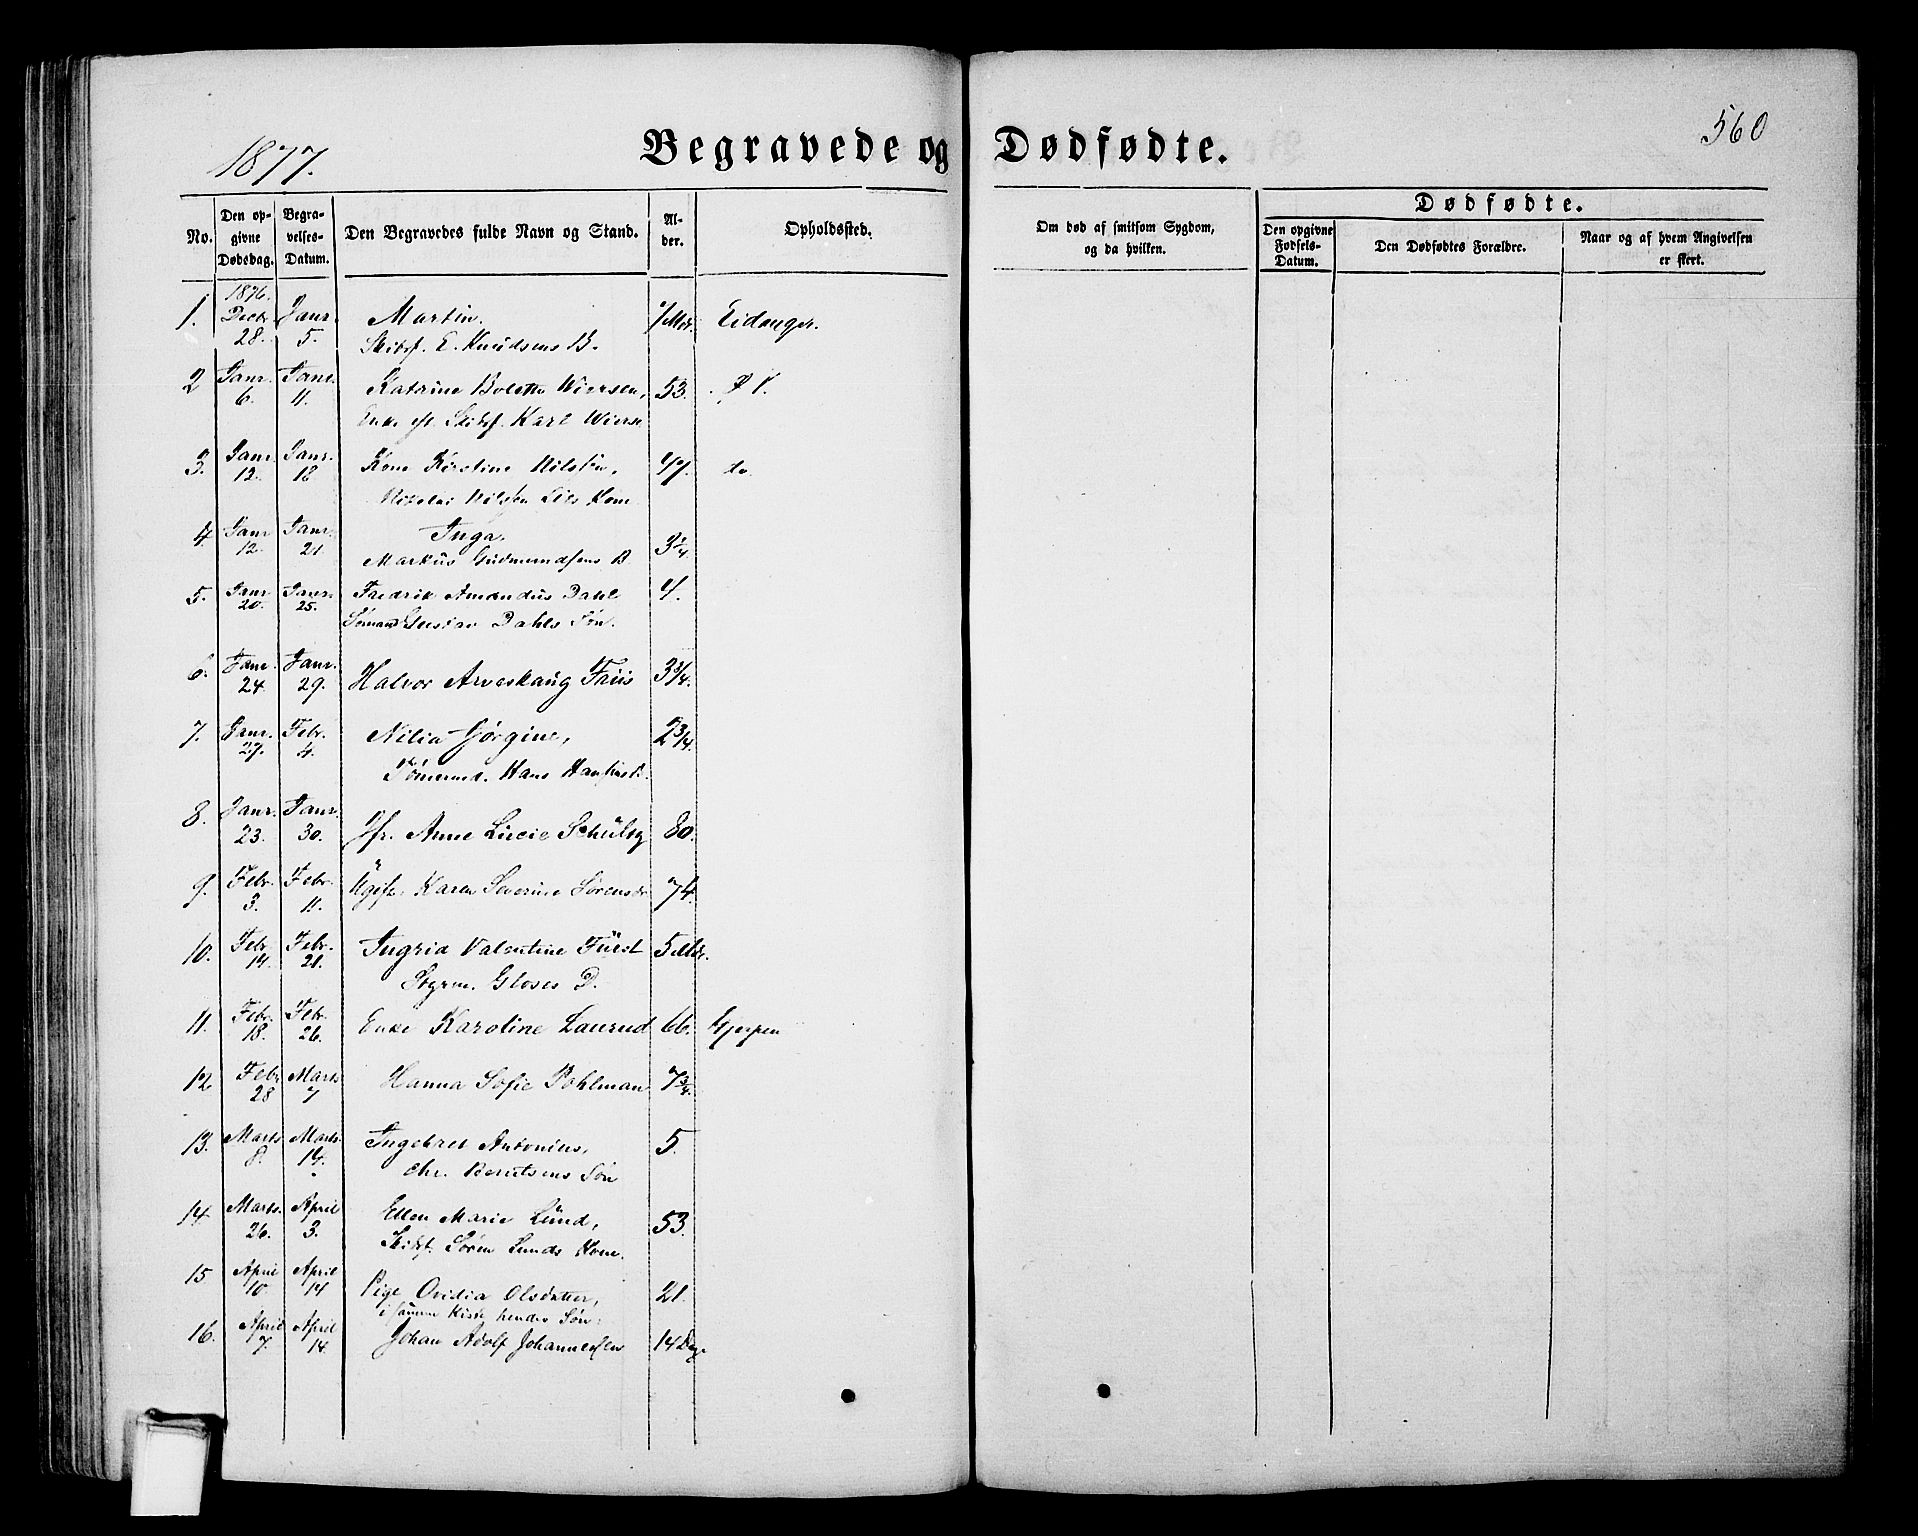 1877.
Begravede og Dødfødte.
560
No.
Den opgivne Dødsdag.
Begravelses-Datum.
Den Begravedes fulde Navn og Stand.
Alder.
Opholdssted.
Om død af smitsom Sygdom, og da hvilken.
Dødfødte.
Den opgivne Fødsels-Datum.
Den Dødfødtes Forældre.
Naar og af hvem Angivelsen er skeet.
1. 1876. Decbr. 28. Janr. 5. Martin. 7 Mdr. Eidanger.
Skibsf. E. Knudsens B.
2 Janr. 6. Janr. 11. Katrine Bolette Wiersen, 53.
Enke eft. Skibsf. Karl Wierse
3. Janr. 12. Janr. 18 Kone Kirstine Nilsen, 47. do
Nikolai Nilssen Kone
4. Janr 12. Janr. 21. Inga. 3 3/4
Markus Gudmundsens B.
5. Janr 20. Janr. 25. Fredrik Amandus Dahl 4.
Sømand Gustav Dahls Søn.
6. Janr. 24. Janr. 29. Halvor Arveskaug Friis 3 3/4.
7. Janr. 27. Febr. 4. Nilia Jørgine, 2 3/4.
Tømermd. Hans
8. Janr. 23. Janr. 30. Jfr. Anne Lucie 80.
9. Febr. 3. Febr. 11. Karen Severine Sørensdr 74.
10. Febr. 14. Febr. 21. Ingrid Valentine Fürst 5 Mdr.
Styrm. D.
11. Febr. 18. Febr. 26. Enke Karoline Laurud 66. Gjerpen
12 Febr 28 Marts 7 Hanna Sofie Pohlman 7 3/4.
13. Marts 8. Marts. 14. Ingebret Antonius, 5.
Chr. Berntsens Søn
14. Marts. 26. April 3. Ellen Marie Lund, 53.
Skibsf. Søren Lunds Kone.
15 April 10. April 14 Pige Ovidia Olsdatter, 21.
i samme Kiste hendes Søn:
16. April 7. April 14. Johan Adolf Johannessen 14 Dage